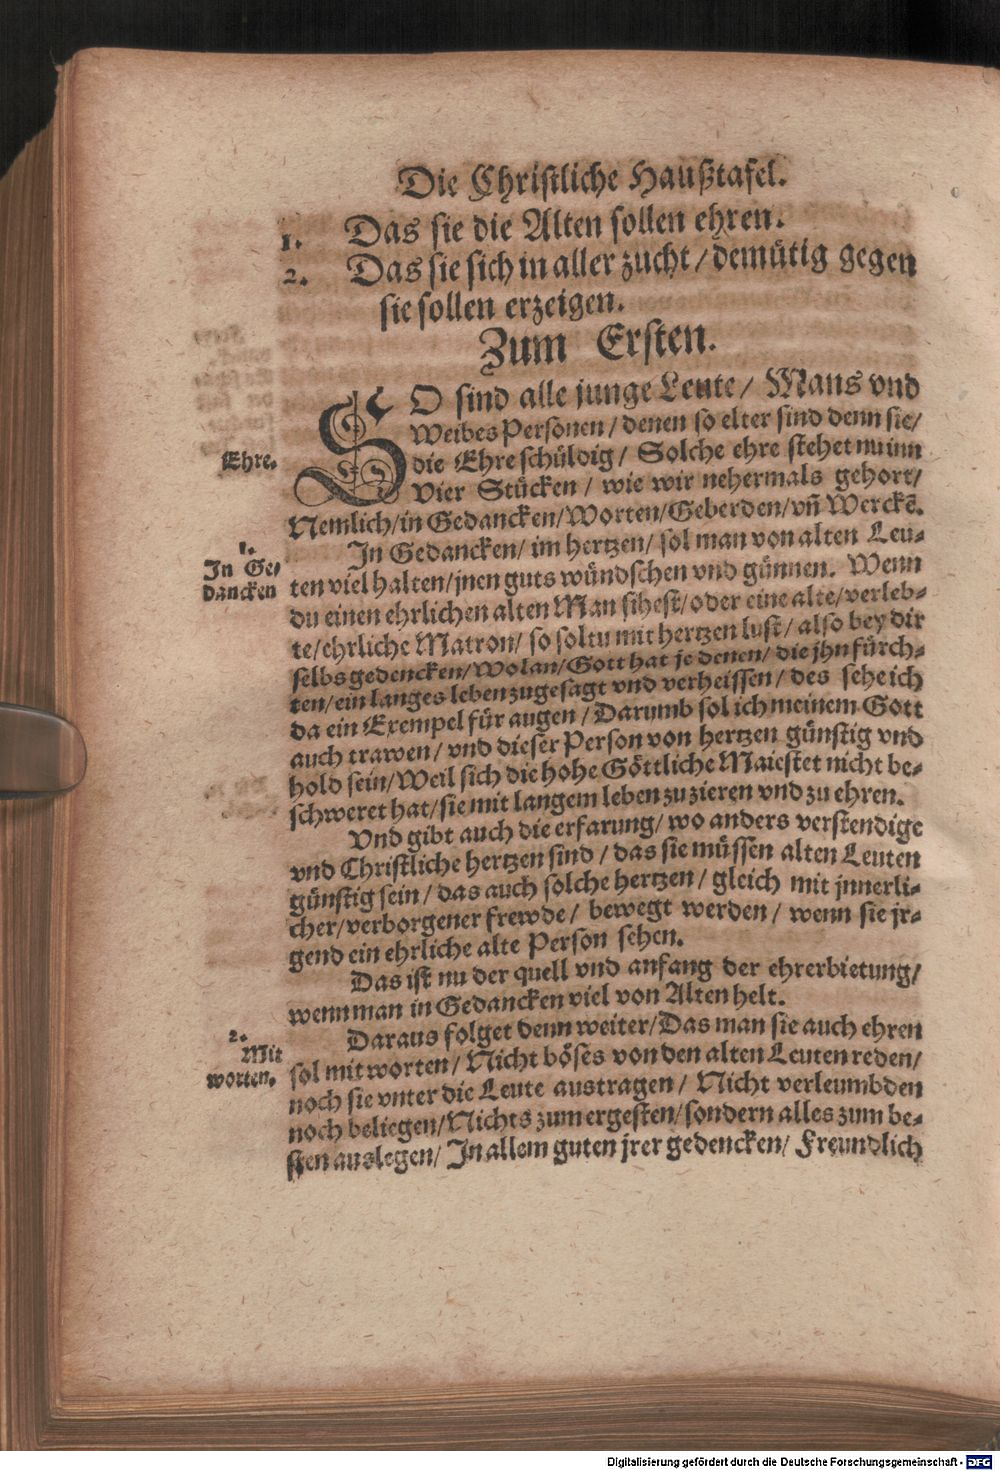 Die Christliche Haußtafel.
1. Das sie die Alten sollen ehren.
2. Das sie sich in aller zucht / demütig gegen
sie sollen erzeigen.
Zum Ersten.
SO sind alle junge Leute / Mans vnd
Weibes Personen / denen so elter sind denn sie /
Ehre.
die Ehre schüldig / Solche ehre stehet nu inn
vier Stücken / wie wir nehermals gehort /
Nemlich / in Gedancken / Worten / Geberden / vñ Werckē.
1.
In Ge-
dancken
In Gedancken / im hertzen / sol man von alten Leu-
ten viel halten / jnen guts wündschen vnd günnen. Wenn
du einen ehrlichen alten Man sihest / oder eine alte / verleb-
te / ehrliche Matron / so soltu mit hertzen lust / also bey dir
selbs gedencken / Wolan / Gott hat je denen / die jhn fürch-
ten / ein langes leben zugesagt vnd verheissen / des sehe ich
da ein Exempel für augen / Darumb sol ich meinem Gott
auch trawen / vnd dieser Person von hertzen günstig vnd
hold sein / Weil sich die hohe Göttliche Maiestet nicht be-
schweret hat / sie mit langem leben zu zieren vnd zu ehren.
Vnd gibt auch die erfarung / wo anders verstendige
vnd Christliche hertzen sind / das sie müssen alten Leuten
günstig sein / das auch solche hertzen / gleich mit jnnerli-
cher / verborgener frewde / bewegt werden / wenn sie jr-
gend ein ehrliche alte Person sehen.
Das ist nu der quell vnd anfang der ehrerbietung /
wenn man in Gedancken viel von Alten helt.
2.
Mit
worten.
Daraus folget denn weiter / Das man sie auch ehren
sol mit worten / Nicht böses von den alten Leuten reden /
noch sie vnter die Leute austragen / Nicht verleumbden
noch beliegen / Nichts zum ergesten / sondern alles zum be-
sten auslegen / In allem guten jrer gedencken / Freundlich
Digitalisierung gefördert durch die Deutsche Forschungsgemeinschaft - DFG